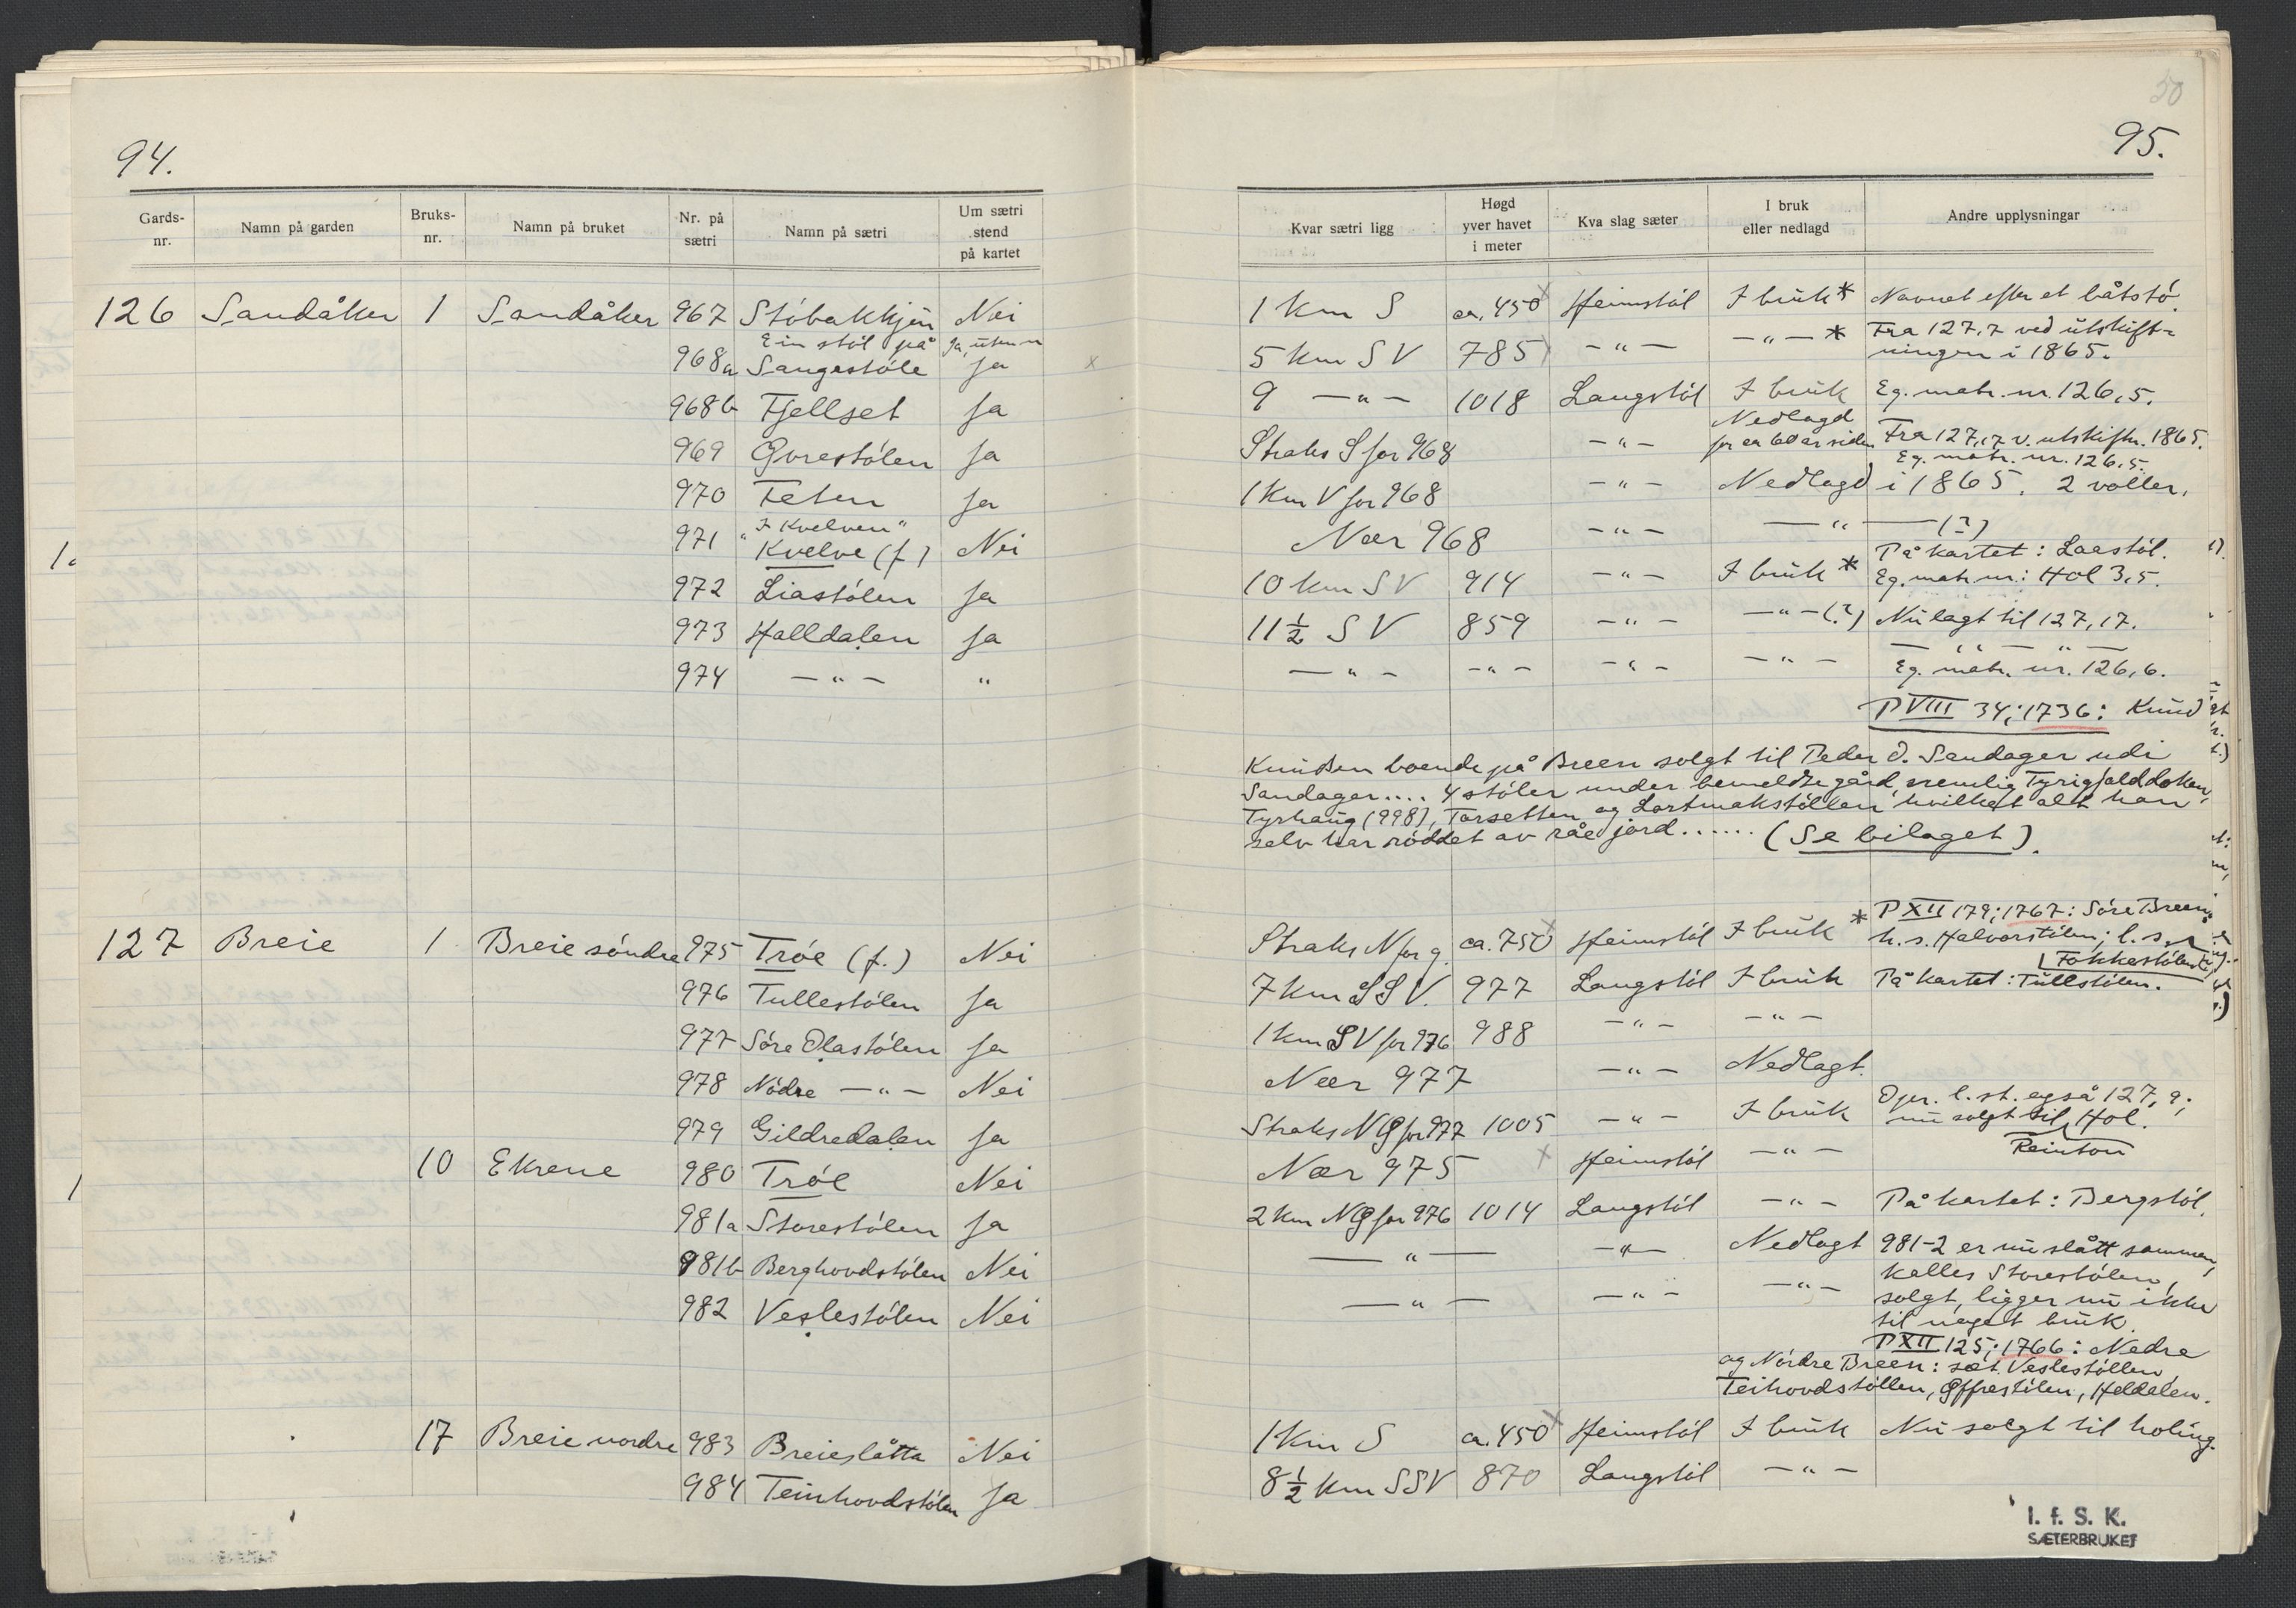 94.
Gards-nr. Namn på garden Bruks-nr. Namn på bruket Nr. på sætri Namn på sætri Um sætri stend på kartet
126 Sandåker 1 Sandåker 967 Støbakkjen Nei
Ein støl på Ja, uten n
968a Sangestøle Ja
968b Fjellset Ja
969 Gvrestølen Ja
970 Feten Ja
"I Kvelven"
971 Kvelve (f.) Nei
972 Liastølen Ja
973 Halldalen Ja
974 — " — "
127 Breie 1 Breie søndre 975 Trøe (f.) Nei
976 Tullestølen Ja
977 Søre Olastølen Ja
978 Nødre — " — Nei
979 Gildredalen Ja
10 Ekrene 980 Trøe Nei
981a Storestølen Ja
981b Berghovdstølen Nei
982 Veslestølen Nei
17 Breie nordre 983 Breieslåtta Nei
984 Teinhovdstølen Ja
50
95.
Kvar sætri ligg Høgd yver havet i meter Kva slag sæter I bruk eller nedlagd Andre upplysningar
1 km S ca. 450 x Heimstøl I bruk * Navnet efter et båtstø
5 km SV 785 — " — — " — * Fra 127,7 ved utskift-
ningen i 1865.
9 — " — 1018 Langstøl I bruk Eg. matr. nr. 126,5.
Straks S for 968 — " — Nedlagd for ca 60 år siden Fra 127,17 v. utskiftn. 1865.
Eg. matr. nr. 126,5.
1 km V for 968 — " — Nedlagd i 1865. 2 voller.
Nær 968 — " — — " — (?)
På kartet: Laastøl.
10 km SV 914 — " — I bruk * Eg. matr. nr.: Hol 3,5.
11 1/2 SV 859 — " — — " — (?) Nu lagt til 127,17.
— " — — " —
— " — — " — — " — — " — Eg. matr. nr. 126,6.
P VIII 34; 1736: Knud
Knudsen boende på Breen solgt til Peder O. Sandager udi
Sandager.... 4 støler under bemeldte gård, nemlig Tyrigjalddoken,
Tyrhaug (998), Torsetten og Lortmakstøllen, hvilket alt han
selv har røddet av råe jord...... (Se bilaget).
P XII 179; 1767: Søre Breen:
Straks N for g. ca. 750 x Heimstøl I bruk * h.s. Halvorstølen; l.s.
Fokkestølen
7 km SSV. 977 Langstøl I bruk På kartet: Tullstølen.
1 km SV for 976 988 — " — — " —
Nær 977 — " — Nedlagt.
Straks NØ for 977 1005 — " — I bruk Opr. l. st. også 127,9;
nu solgt til Hol.
Reinton
Nær 975 x Heimstøl — " —
2 km NØ for 976 1014 Langstøl — " — På kartet: Bergstøl.
— " — — " — Nedlagt 981-2 er nu slått sammen,
kalles Storestølen,
— " — — " — — " — solgt, ligger nu ikke
til någet bruk.
P XII 125; 1766: Nedre
og Nørdre Breen: sæt. Veslestøllen,
Teihovdstøllen, Øffrestølen, Heldalen.
1 km S ca. 450 x Heimstøl I bruk Nu solgt til holing.
8 1/2 km SSV 870 Langstøl — " —
I. f. S. K.
SÆTERBRUKET